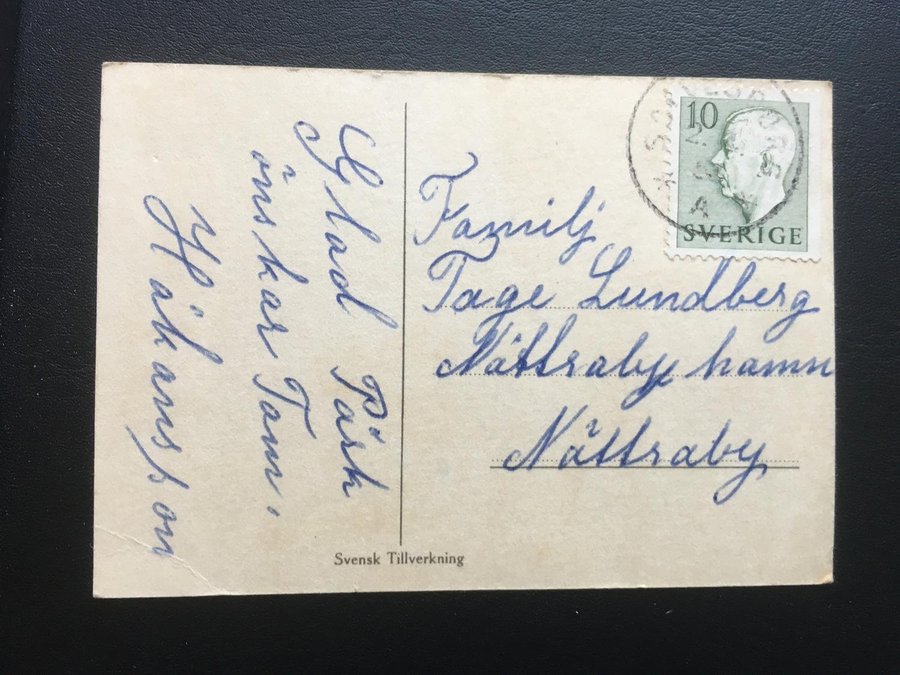 Glad Påsk
önskar Fam.
Håkansson
Familj
Tage Lundberg
Nättraby hamn
Nättraby
10
SVERIGE
Svensk Tillverkning